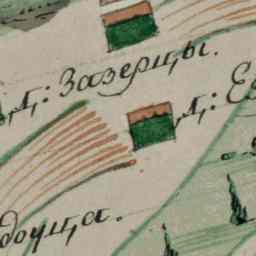 Д: Зазерцы.
Д: Ез
доуща.